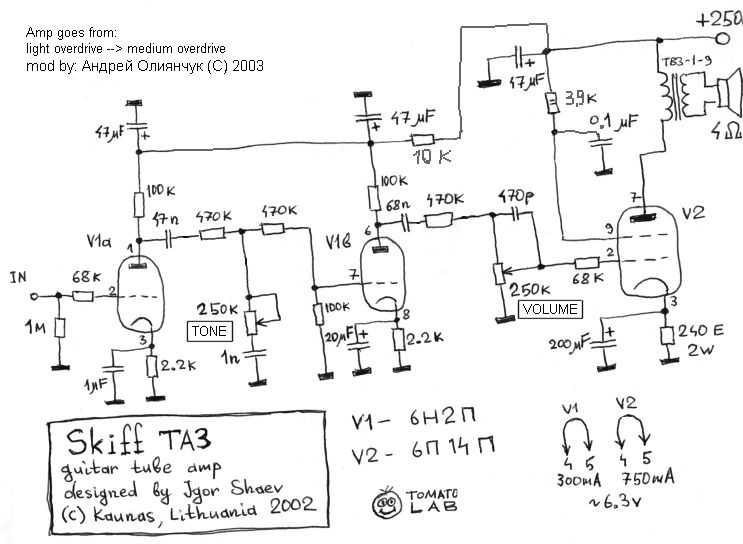 Amp goes from:
light overdrive --> medium overdrive
mod by: Андрей Олиянчук (C) 2003
+250
ТВЗ-1-9
4Ω
47µF
+
47µF
+
47µF
+
3,9к
0,1µF
10 K
100к
100к
47n
470к
470к
68n
470к
470p
V1a
1
V1в
6
7
V2
9
2
IN
68к
2
7
250к
TONE
100к
250к
VOLUME
68к
1м
3
8
3
1µF
2.2к
1n
20µF
+
2.2к
200µF
+
240 E
2w
Skiff TA3
guitar tube amp
designed by Igor Shaev
(c) Kaunas, Lithuania 2002
V1- 6Н2П
V2- 6П14П
TOMATO
LAB
V1 V2
4 5 4 5
300mA 750mA
~6.3v